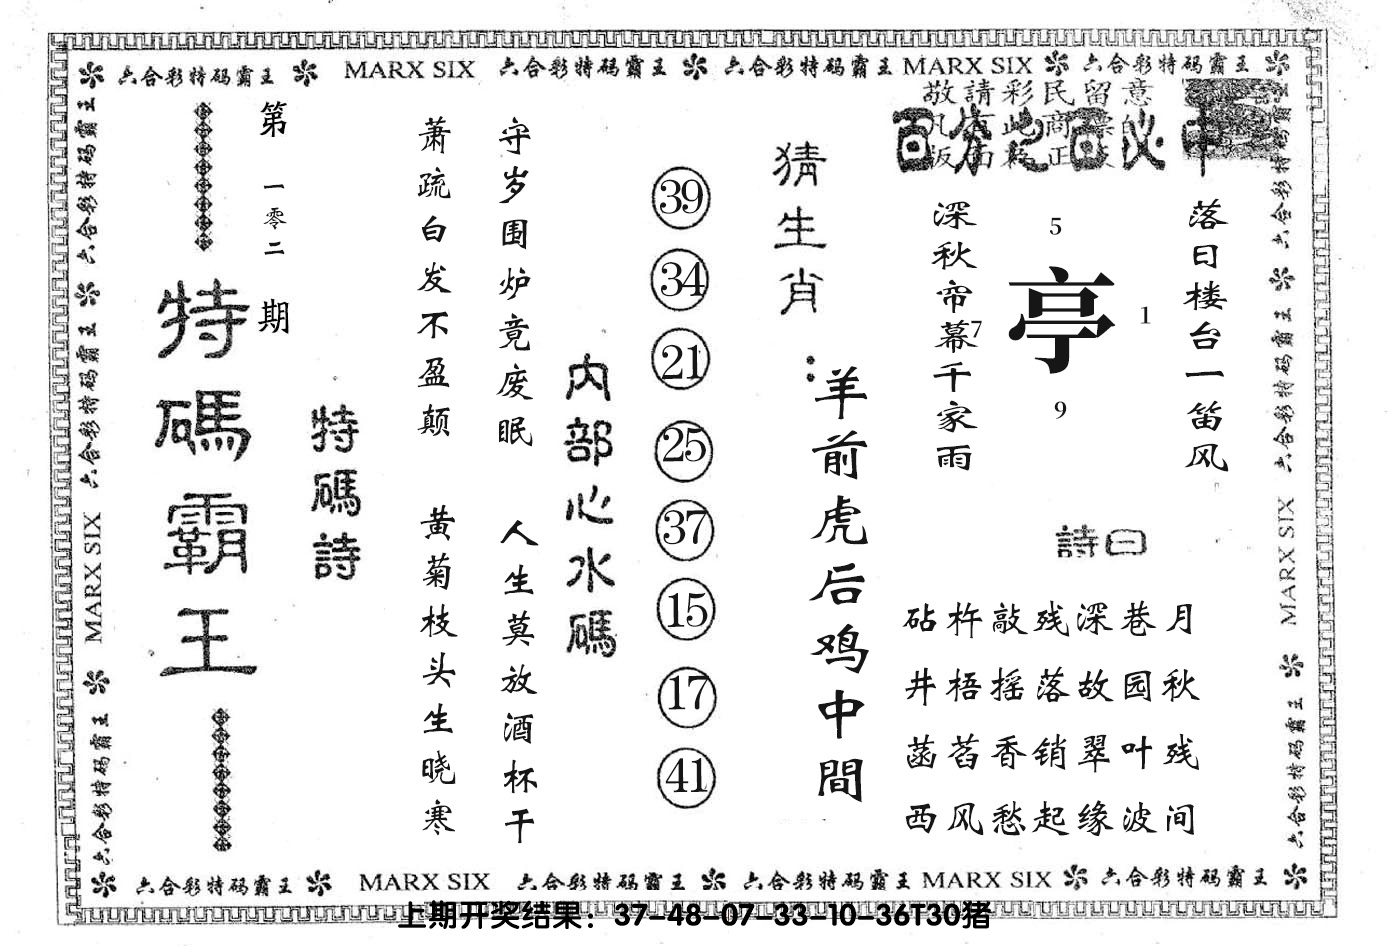 六合彩特码霸王 MARX SIX 六合彩特码霸王 六合彩特码霸王 MARX SIX 六合彩特码霸王
敬請彩民留意
百分之百必中
落日楼台一笛风
深秋帘幕千家雨
5
7
亭
1
9
詩曰
砧杵敲残深巷月
井梧摇落故园秋
菡萏香销翠叶残
西风愁起缘波间
猜生肖：
羊前虎后鸡中間
39
34
21
25
37
15
17
41
内部心水碼
守岁围炉竟废眠
人生莫放酒杯干
萧疏白发不盈颠
黄菊枝头生晓寒
特碼詩
第一零二期
特碼霸王
六合彩特码霸王 六合彩特码霸王 MARX SIX 六合彩特码霸王
六合彩特码霸王 六合彩特码霸王 MARX SIX 六合彩特码霸王
六合彩特码霸王 MARX SIX 六合彩特码霸王 六合彩特码霸王 MARX SIX 六合彩特码霸王
上期开奖结果：37-48-07-33-10-36T30猪